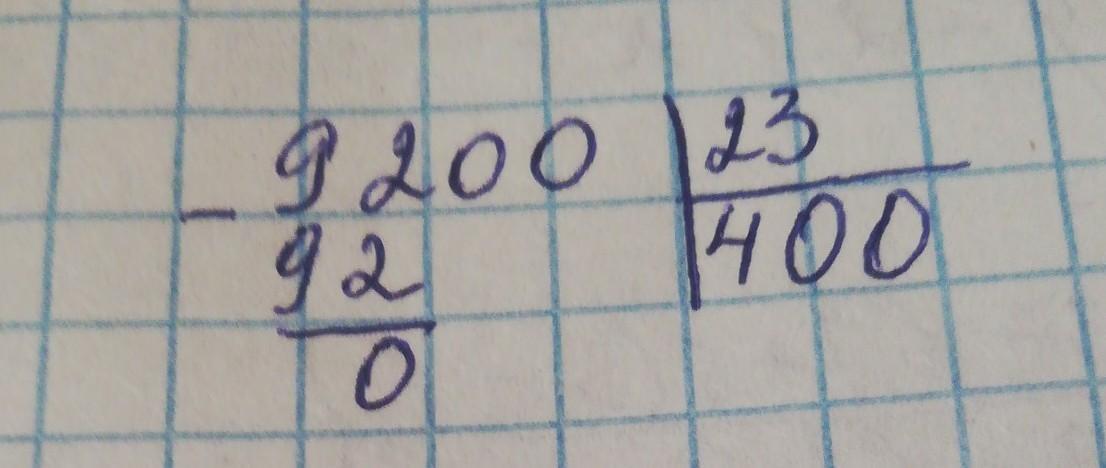 - 9200 | 23
92 | 400
0